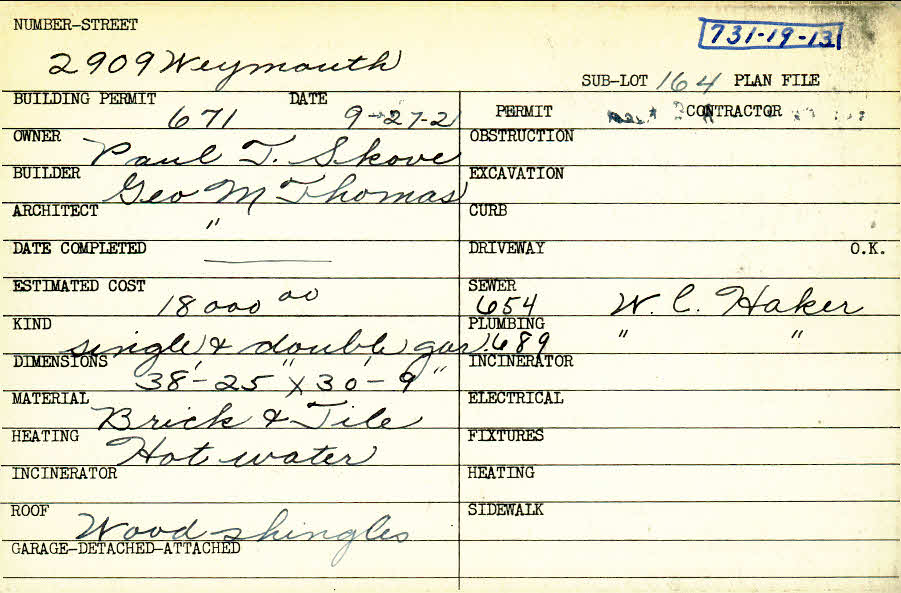 NUMBER-STREET
731-19-13
2909 Weymouth
SUB-LOT 164 PLAN FILE
BUILDING PERMIT 671 DATE 9-27-2
PERMIT CONTRACTOR
OWNER Paul T. Skove
OBSTRUCTION
BUILDER Geo M Thomas
EXCAVATION
ARCHITECT "
CURB
DATE COMPLETED
DRIVEWAY O.K.
ESTIMATED COST 18000 00
SEWER 654 W. C. Haker
KIND single & double gar.
PLUMBING 689 " "
DIMENSIONS 38'-25" x 30'-9"
INCINERATOR
MATERIAL Brick & Tile
ELECTRICAL
HEATING Hot water
FIXTURES
INCINERATOR
HEATING
ROOF Wood shingles
SIDEWALK
GARAGE-DETACHED-ATTACHED